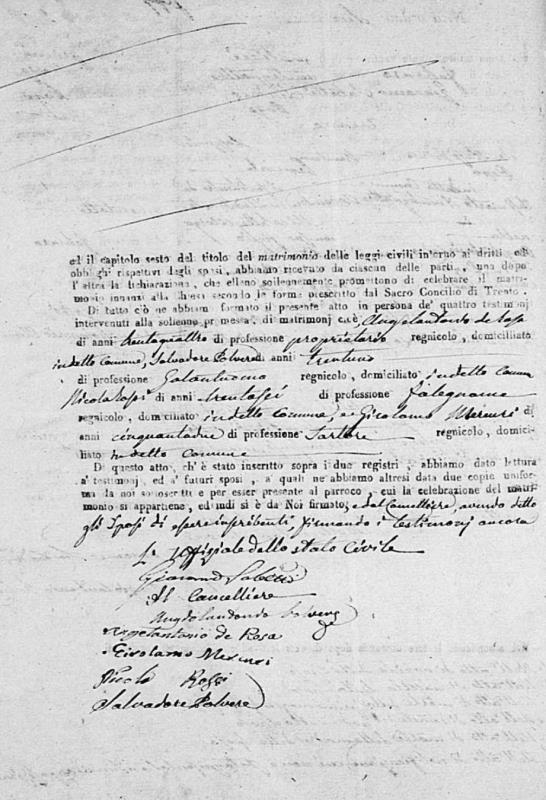 ed il capitolo sesto del titolo del matrimonio delle leggi civili interno ai dritti ed
obblighi rispettivi degli sposi, abbiamo ricevuto da ciascun delle parti, una dopo
l'altra la dichiarazione, che elleno solennemente promettono di celebrare il matri-
monio innanzi alla chiesa secondo le forme prescritto dal Sacro Concilio di Trento.
Di tutto ciò ne abbiam formato il presente atto in persona de' quattro testimonj
intervenuti alla solenne promessa di matrimonj cioè Angelantonio de Rosa
di anni trentaquattro di professione proprietario regnicolo, domiciliato
in detto Comune, Salvadore Polvere di anni trentuno
di professione Galantuomo regnicolo, domiciliato in detto Comune
Nicola Rossi di anni trentasei di professione falegname
regnicolo, domiciliato in detto Comune, e Girolamo Mercuri di
anni cinquantadue di professione Sartore regnicolo, domici-
liato in detto Comune
Di questo atto, ch'è stato inscritto sopra i due registri, abbiamo dato lettura
a' testimonj, ed a' futuri sposi, a' quali ne abbiamo altresì data due copie uniforma
da noi sottoscritti e per esser presente al parroco, cui la celebrazione del matri-
monio si appartiene, ed indi si è da Noi firmato, e dal Cancelliere, avendo detto
gli Sposi di essere inscribenti, firmando i Testimonj ancora
L'Uffiziale dello stato Civile
Il Cancelliere
Angelantonio de Rosa
Girolamo Mercuri
Nicola Rossi
Salvadore Polvere